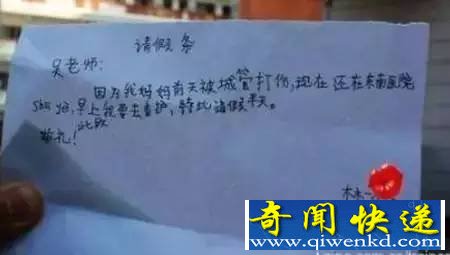 请假条
吴老师：
因为我妈妈前天被城管打伤，现在还在东南医院
躺着，早上我要去看护，特此请假半天。
此致
敬礼！
林
奇闻快递
www.qiwenkd.com